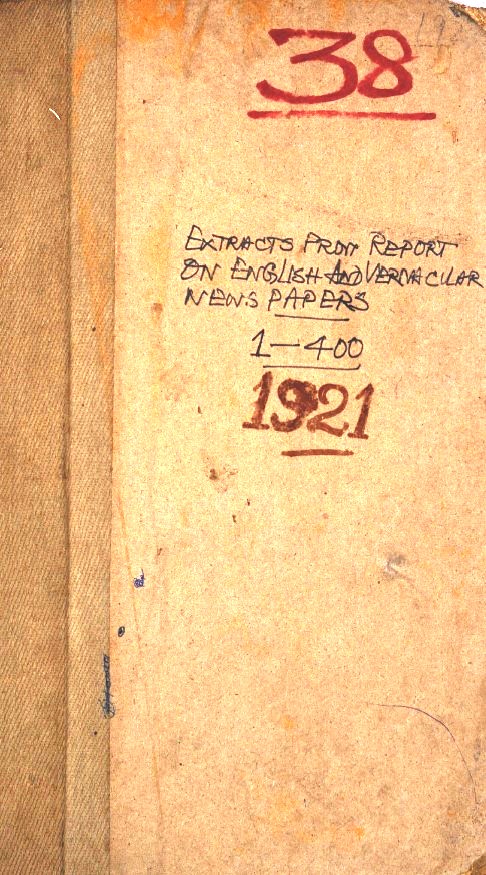 38
EXTRACTS FROM REPORT
ON ENGLISH AND VERNACULAR
NEWS PAPERS
1-400
1921